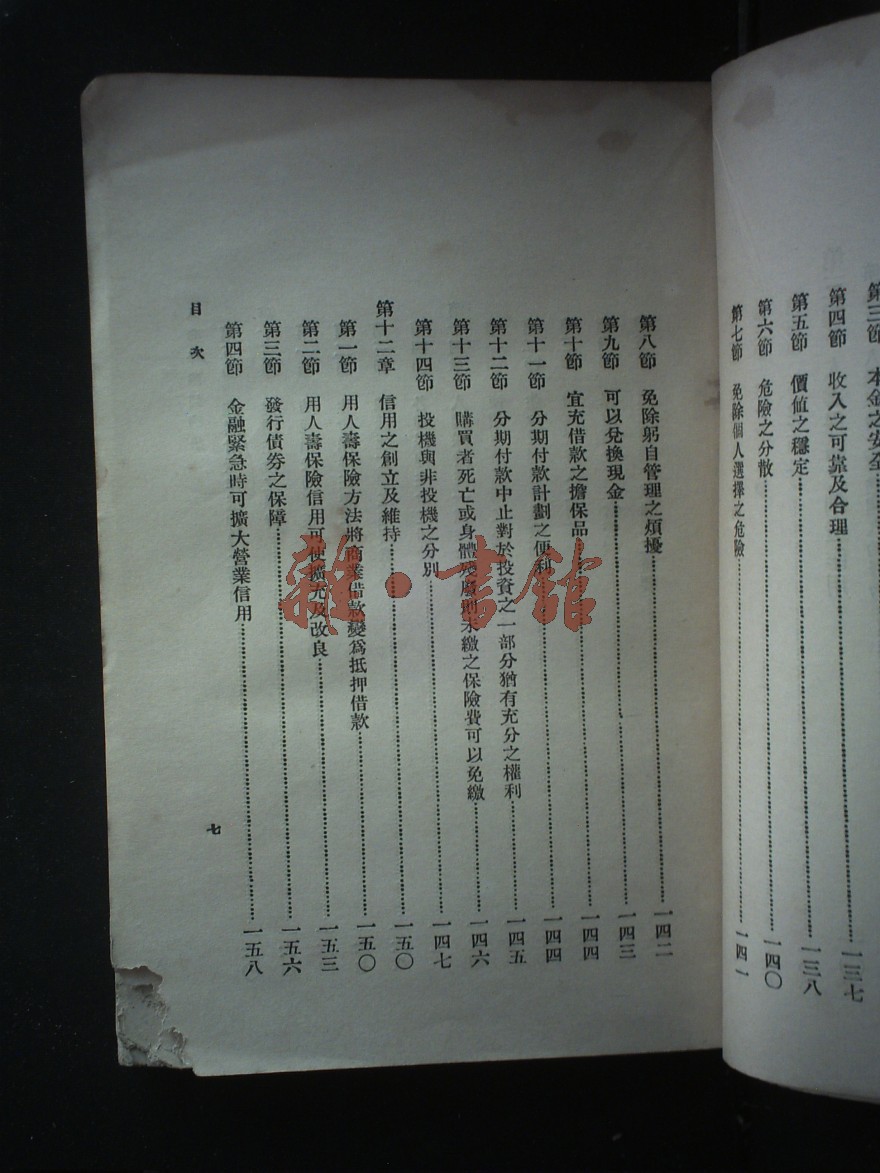 第三節 本金之安全
第四節 收入之可靠及合理 一三七
第五節 價值之穩定 一三八
第六節 危險之分散 一四〇
第七節 免除個人選擇之危險 一四一
第八節 免除躬自管理之煩擾 一四二
第九節 可以兌換現金 一四三
第十節 宜充借款之擔保品 一四四
第十一節 分期付款計劃之便利 一四四
第十二節 分期付款中止對於投資之一部分猶有充分之權利 一四五
第十三節 購買者死亡或身體殘廢則未繳之保險費可以免繳 一四六
第十四節 投機與非投機之分別 一四七
第十二章 信用之創立及維持 一五〇
第一節 用人壽保險方法將商業借款變爲抵押借款 一五〇
第二節 用人壽保險信用可使擴充及改良 一五三
第三節 發行債券之保障 一五六
第四節 金融緊急時可擴大營業信用 一五八
目次
七
雜·書館